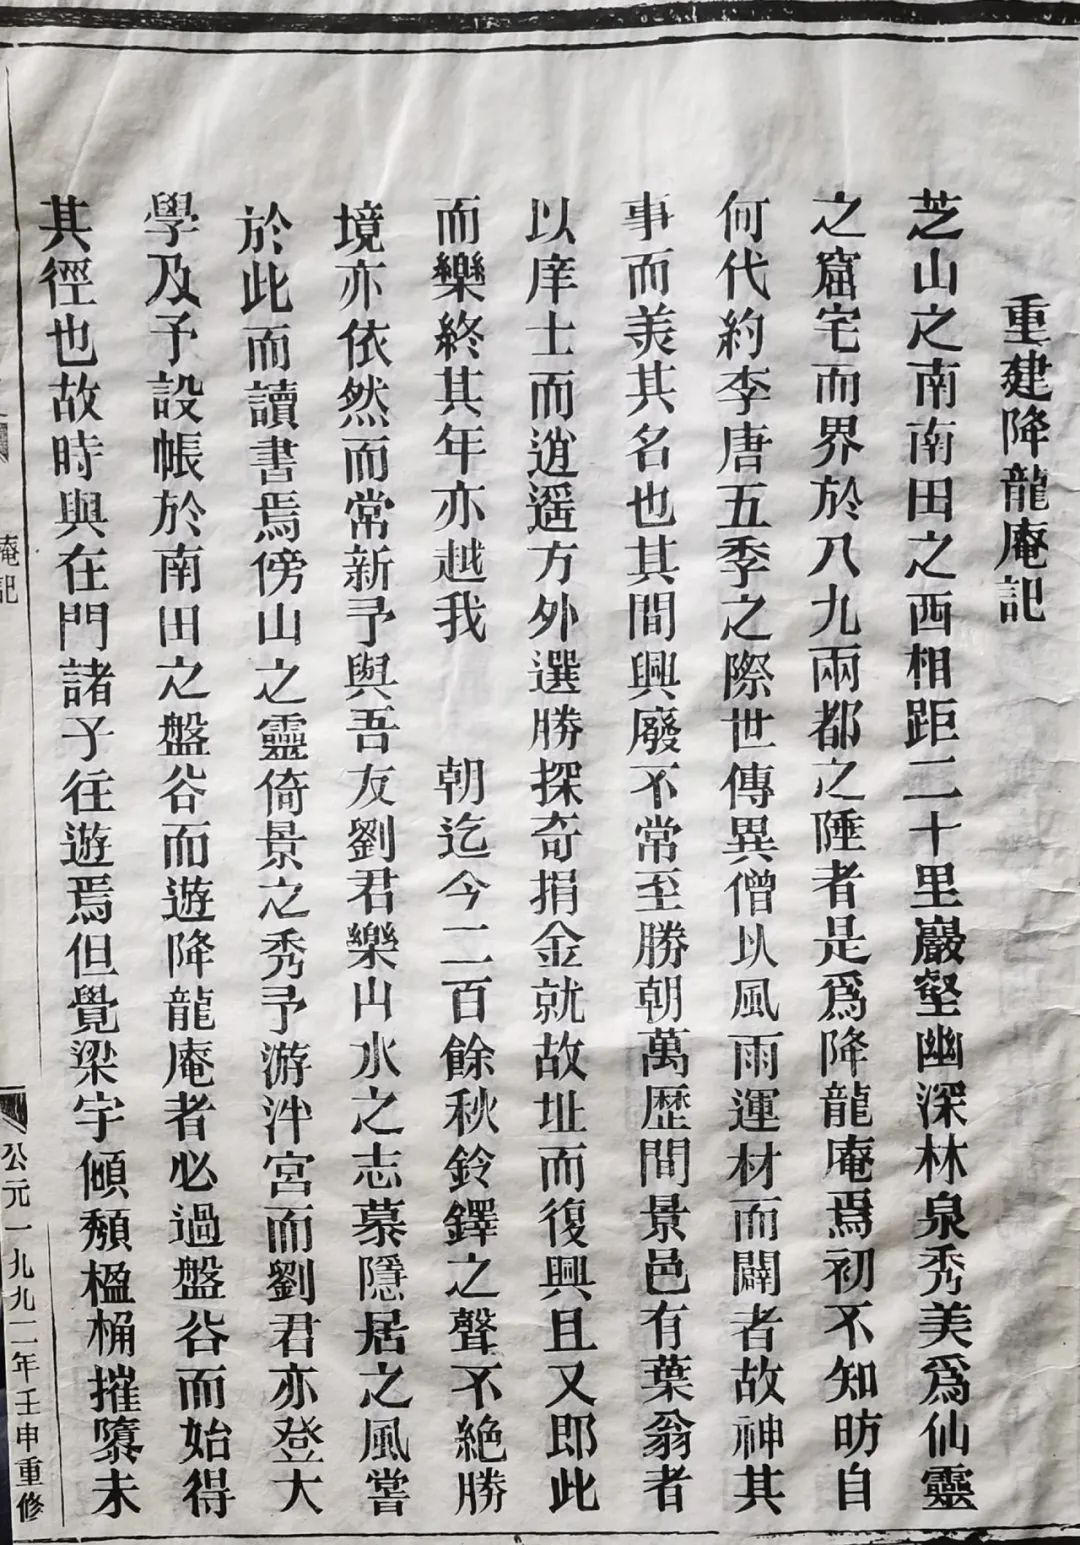 重建降龍庵記
芝山之南南田之西相距二十里巖壑幽深林泉秀美爲仙靈
之窟宅而界於八九兩都之陲者是爲降龍庵焉初不知昉自
何代約李唐五季之際世傳異僧以風雨運材而闢者故神其
事而美其名也其間興廢不常至勝朝萬歷間景邑有葉翁者
以庠士而逍遥方外選勝探奇捐金就故址而復興且又即此
而樂終其年亦越我　朝迄今二百餘秋鈴鐸之聲不絶勝
境亦依然而常新予與吾友劉君樂山水之志慕隱居之風嘗
於此而讀書焉傍山之靈倚景之秀予游泮宮而劉君亦登大
學及予設帳於南田之盤谷而遊降龍庵者必過盤谷而始得
其徑也故時與在門諸子往遊焉但覺梁宇傾頽楹桷摧隳未
庵記
公元一九九二年壬申重修